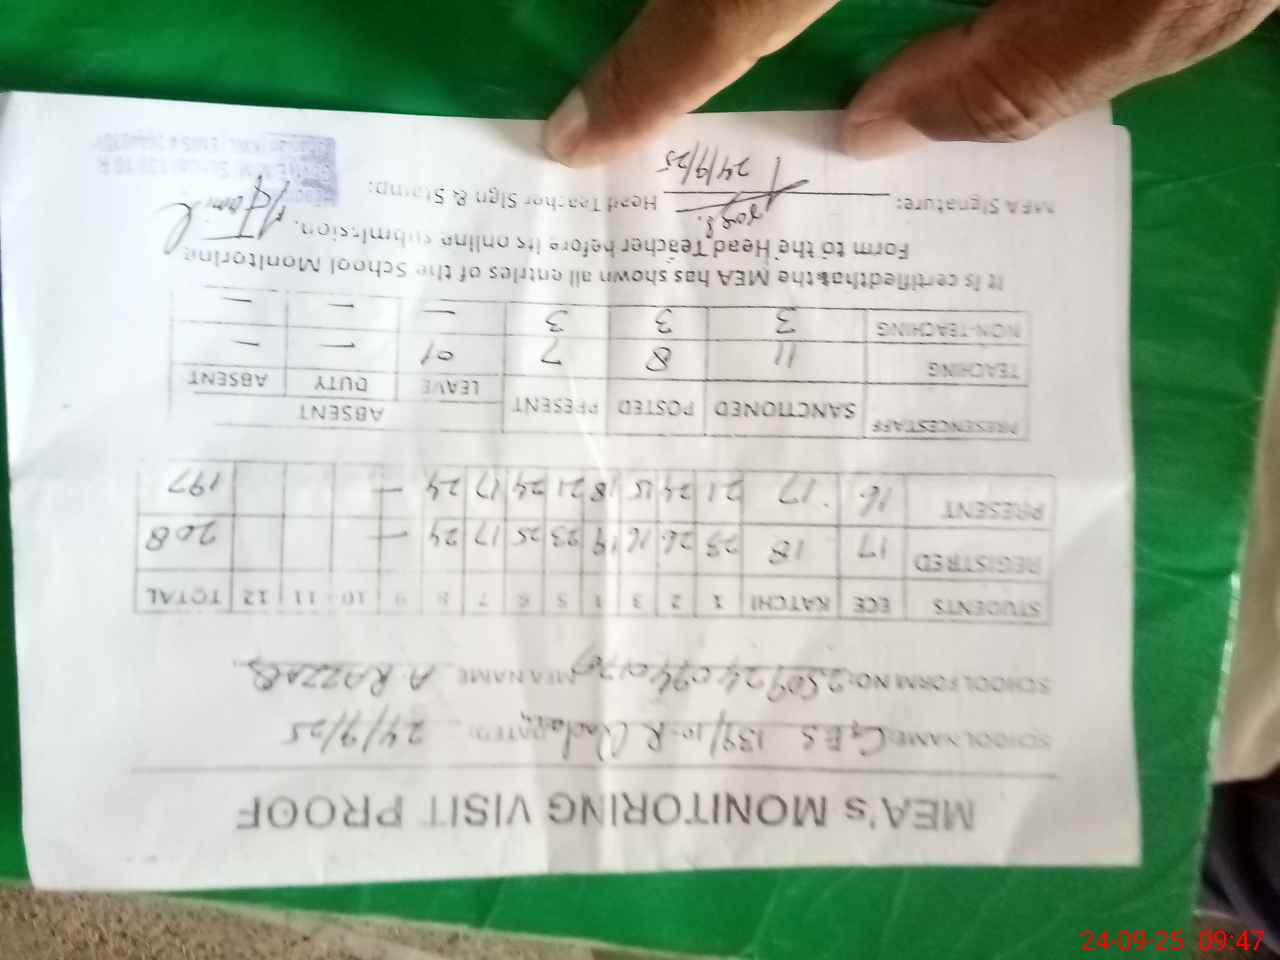 MEA's MONITORING VISIT PROOF
SCHOOL NAME: 139/10-R DATED: 24/9/25
SCHOOL FORM NO: MEA NAME A. RAZZAQ
STUDENTS ECE KATCHI 1 2 3 4 5 6 7 8 9 10 11 12 TOTAL
REGISTRED 17 18 23 26 16 19 23 25 17 24 — 208
PRESENT 16 17 21 24 15 18 21 24 17 24 — 197
PRESENCESTAFF SANCTIONED POSTED PRESENT ABSENT
LEAVE DUTY ABSENT
TEACHING 11 8 7 01 — —
NON-TEACHING 3 3 3 — — —
It is certifiedthatthe MEA has shown all entries of the School Monitoring
Form to the Head Teacher before its online submission.
MEA Signature: Head Teacher Sign & Stamp:
24/9/25
24-09-25 09:47